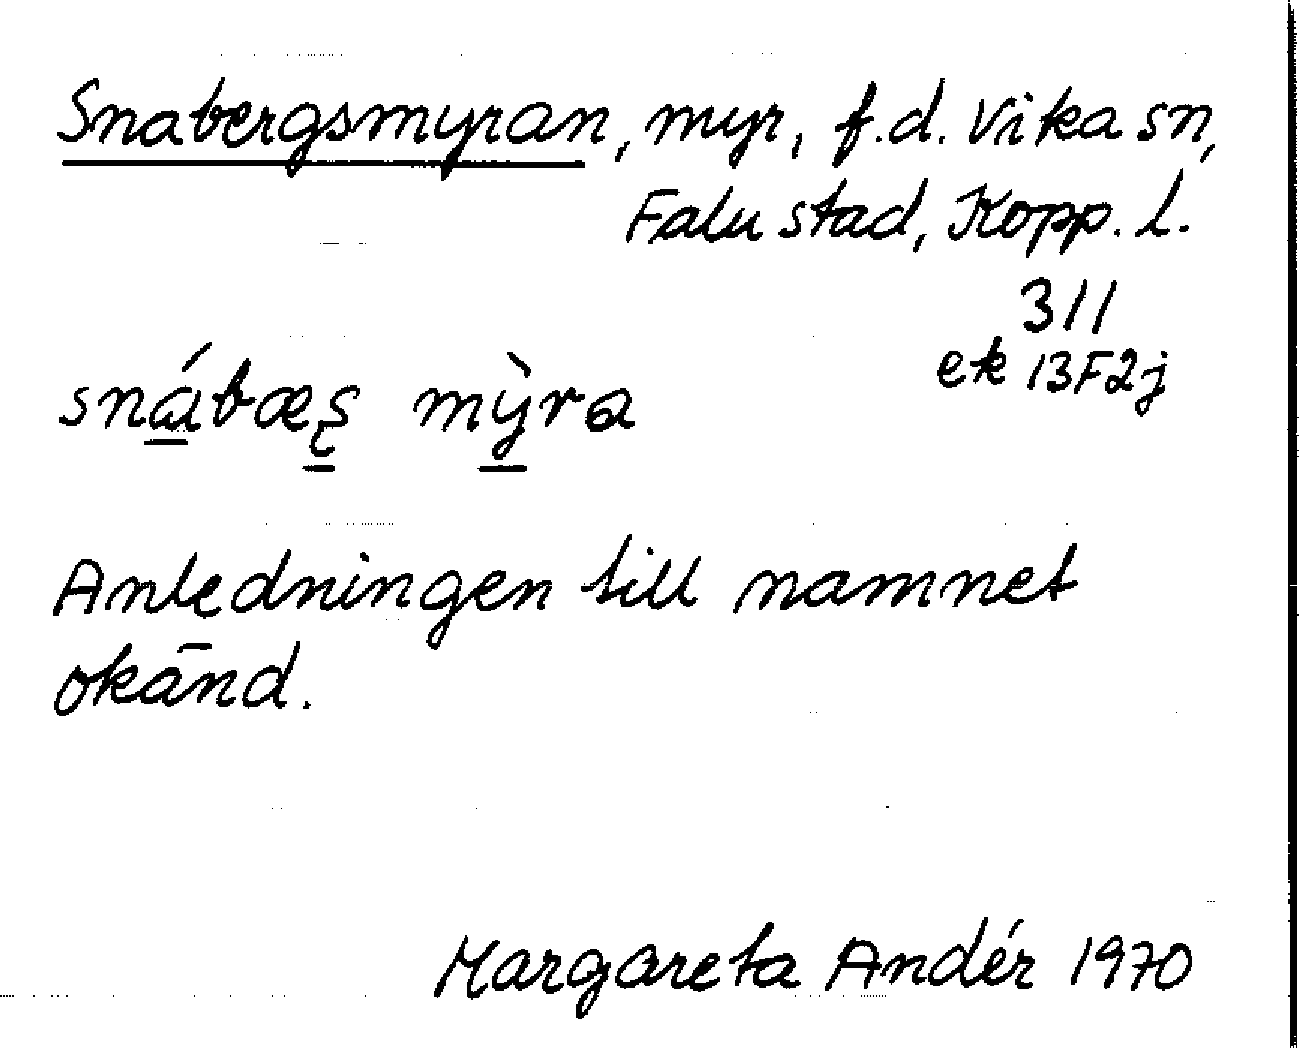 Snabergsmyran, myr, f.d. Vika sn,
Falu stad, Kopp. l.
311
ek 13F2j
snábæʂ mỳra
Anledningen till namnet
okänd.
Margareta Andér 1970